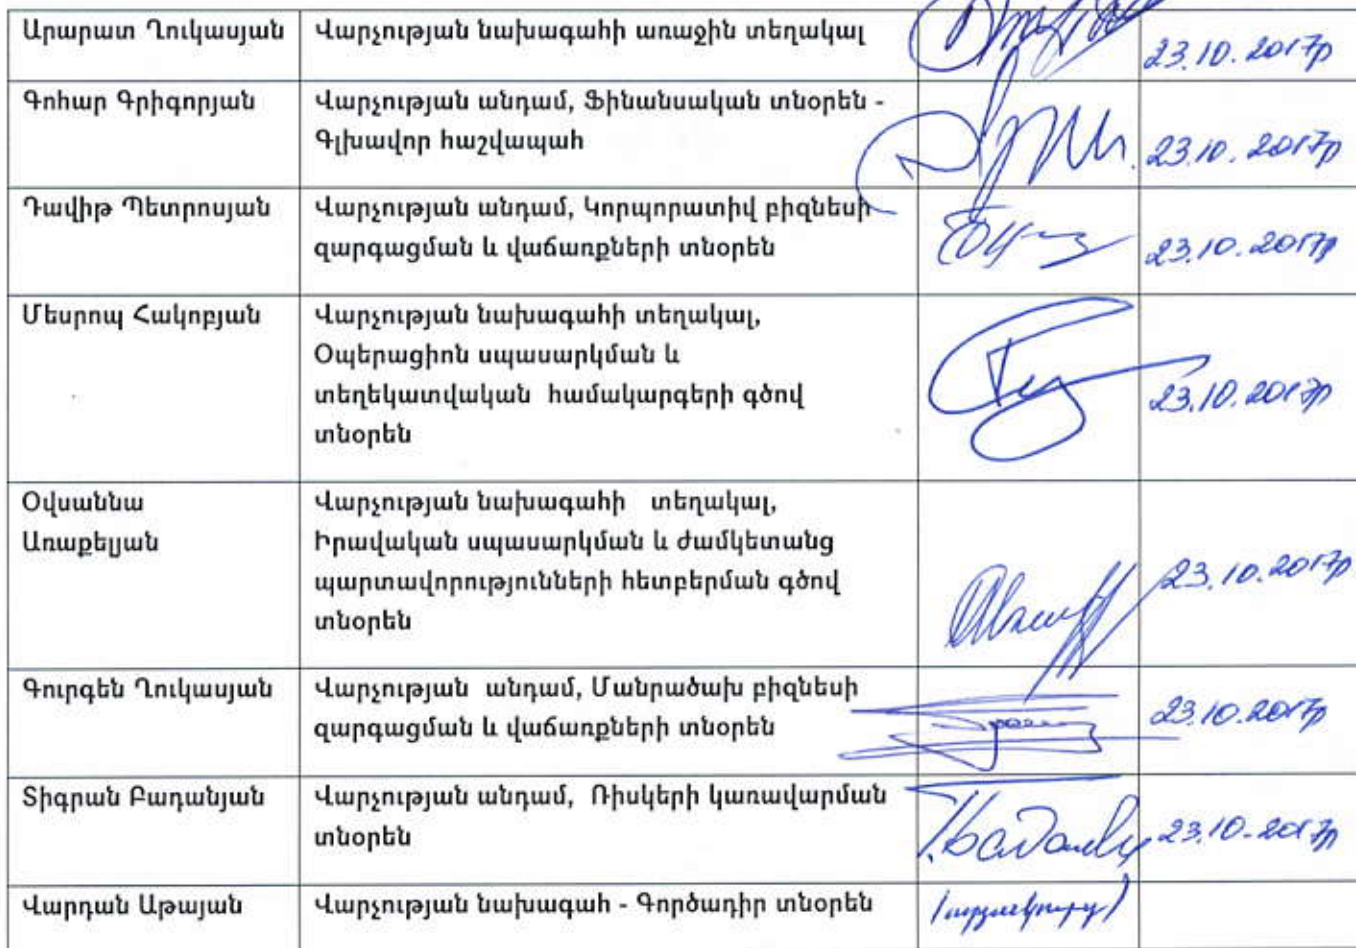 Արարատ Ղուկասյան
Վարչության նախագահի առաջին տեղակալ
23.10.2017թ
Գոհար Գրիգորյան
Վարչության անդամ, Ֆինանսական տնօրեն -
Գլխավոր հաշվապահ
23.10.2017թ
Դավիթ Պետրոսյան
Վարչության անդամ, Կորպորատիվ բիզնեսի
զարգացման և վաճառքների տնօրեն
23.10.2017թ
Մեսրոպ Հակոբյան
Վարչության նախագահի տեղակալ,
Օպերացիոն սպասարկման և
տեղեկատվական համակարգերի գծով
տնօրեն
23.10.2017թ
Օվսաննա
Առաքելյան
Վարչության նախագահի տեղակալ,
Իրավական սպասարկման և ժամկետանց
պարտավորությունների հետբերման գծով
տնօրեն
23.10.2017թ
Գուրգեն Ղուկասյան
Վարչության անդամ, Մանրածախ բիզնեսի
զարգացման և վաճառքների տնօրեն
23.10.2017թ
Տիգրան Բադանյան
Վարչության անդամ, Ռիսկերի կառավարման
տնօրեն
23.10.2017թ
Վարդան Աթայան
Վարչության նախագահ - Գործադիր տնօրեն